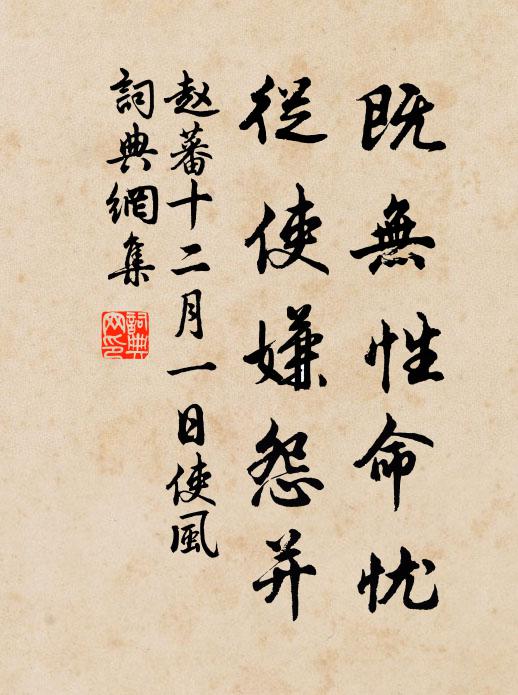 既無性命忧
從使嫌怨并
赵蕃十二月一日使風
詞典網集
詞典
网印